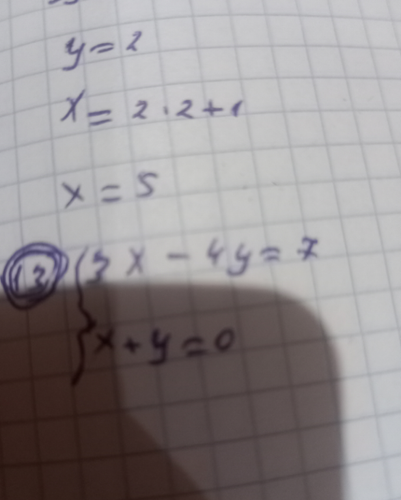 y = 2
x = 2 · 2 + 1
x = 5
13 { 3x - 4y = 7
x + y = 0